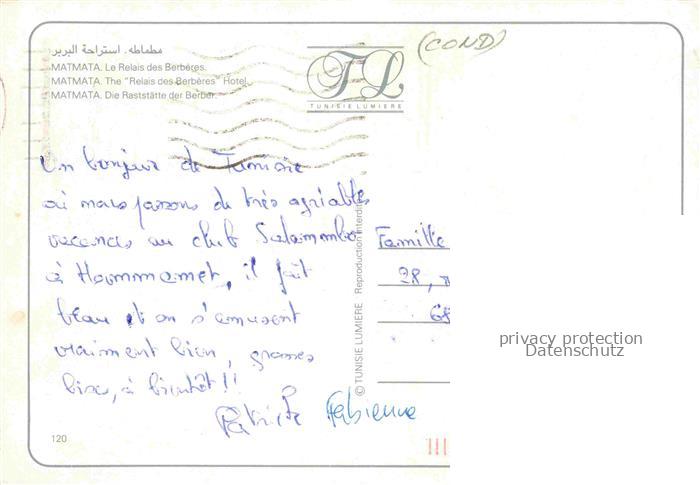 مطماطه. استراحة البربر
MATMATA. Le Relais des Berbères.
MATMATA. The "Relais des Berbères" Hotel.
MATMATA. Die Raststätte der Berber.
TL
TUNISIE LUMIERE
(COND)
Un bonjour de Tunisie
où nous passons de très agréables
vacances au club Salammbo
à Hammamet, il fait
beau et on s'amusent
vraiment bien, grosses
bises, à bientôt!!
Patrick Fabienne
Famille
28,
68
© TUNISIE LUMIERE Reproduction interdite
privacy protection
Datenschutz
120